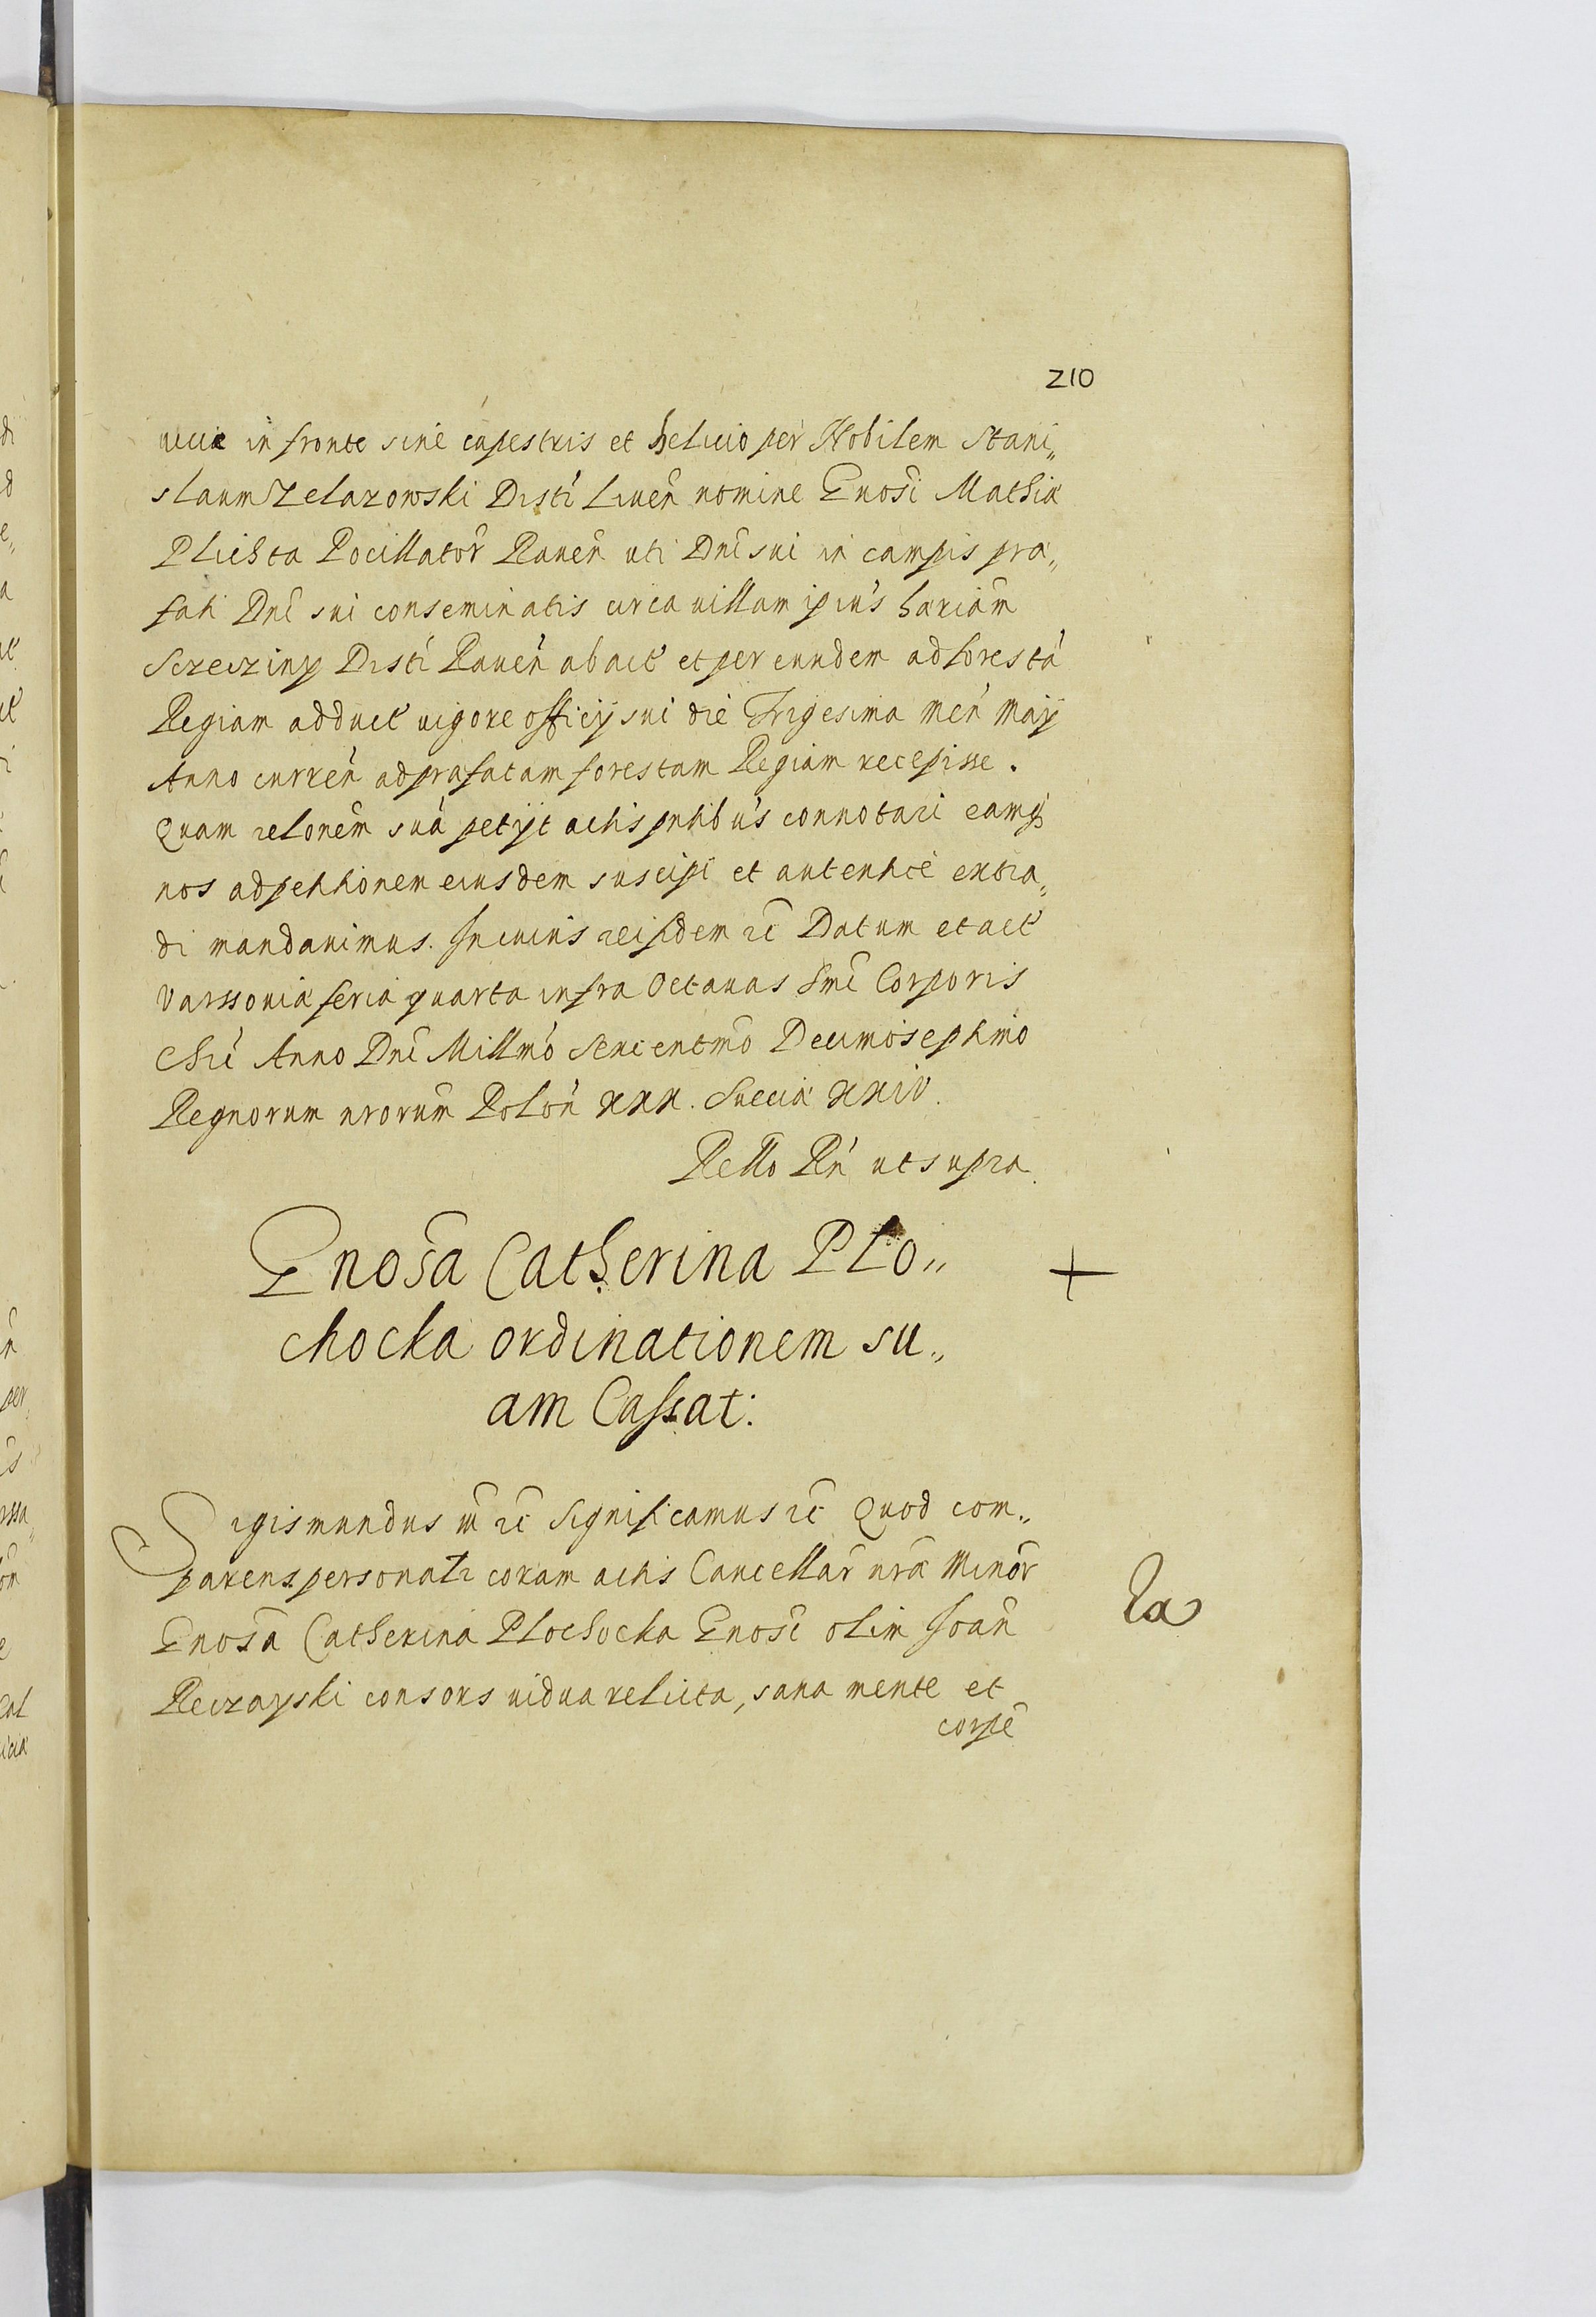 210
in fronte sine capestris et helcio per Nobilem Stani„
slaum Zelazowski Disti Liuen nomine Gnosi Mathiæ
Plichta Pocillator Rauen uti Dni sui in campis præ„
fati Dni sui conseminatis circa uillam ipius hæriam
Disti Rauen abact et per eundem ad foresta
Regiam adduct uigore officij sui die Trigesima men Maij
Anno curren ad præfatam forestam Regiam recepisse.
Quam relonem sua petijt actis pntibus connotari eamq
nos ad petitionem eiusdem suscipi et autentice extra„
di mandauimus. In cuius rei fidem rc Datum et act
Varssouiæ feria quarta infra Octauas Smi Corporis
Chri Anno Dni Millmo Sexcentmo Decimoseptimo
Regnorum nrorum Polon XXX. Sueciæ XXIV.
Rello Rn ut supra.
Gnosa Catherina Plo„
chocka ordinationem su„
am Cassat:
+
Sigismundus III rc Significamus rc Quod com„
parens personatr coram actis Cancellar nræ Minor
Gnosa Catherina Plochocka Gnosi olim Ioan
Reczayski consors uidua relicta, sana mente et
corpe